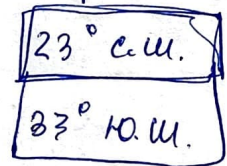 23° с.ш.
33° ю.ш.